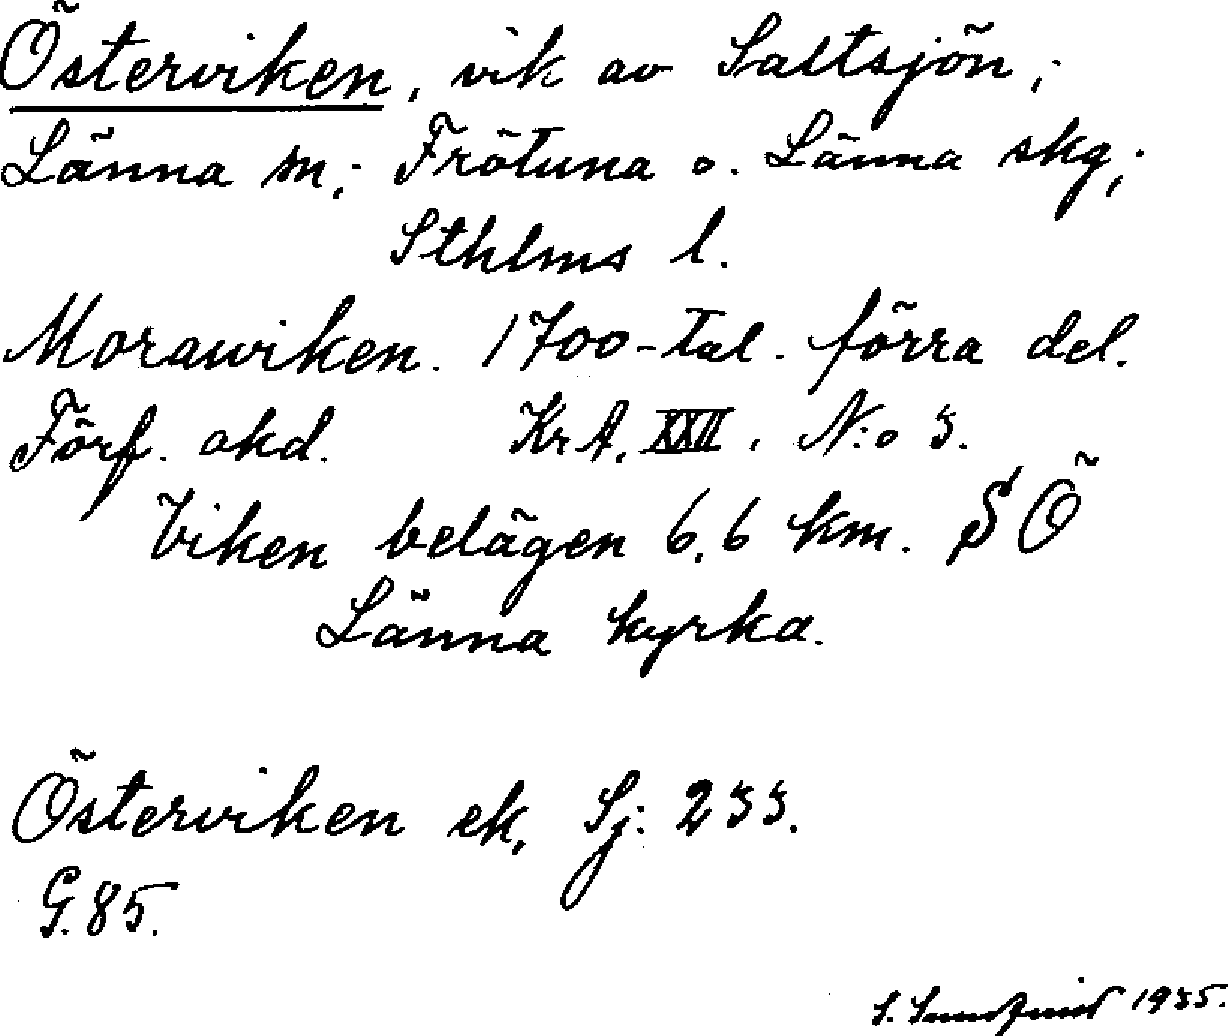 Österviken, vik av Saltsjön,;
Länna sn,; Frötuna o. Länna skg,;
Sthlms l.
Morawiken. 1700-tal. förra del.
Förf. okd. KrA. XXII. N:o 3.
Viken belägen 6,6 km. SÖ
Länna kyrka.
Österviken ek, Sj: 233.
G. 85.
S. 1935.